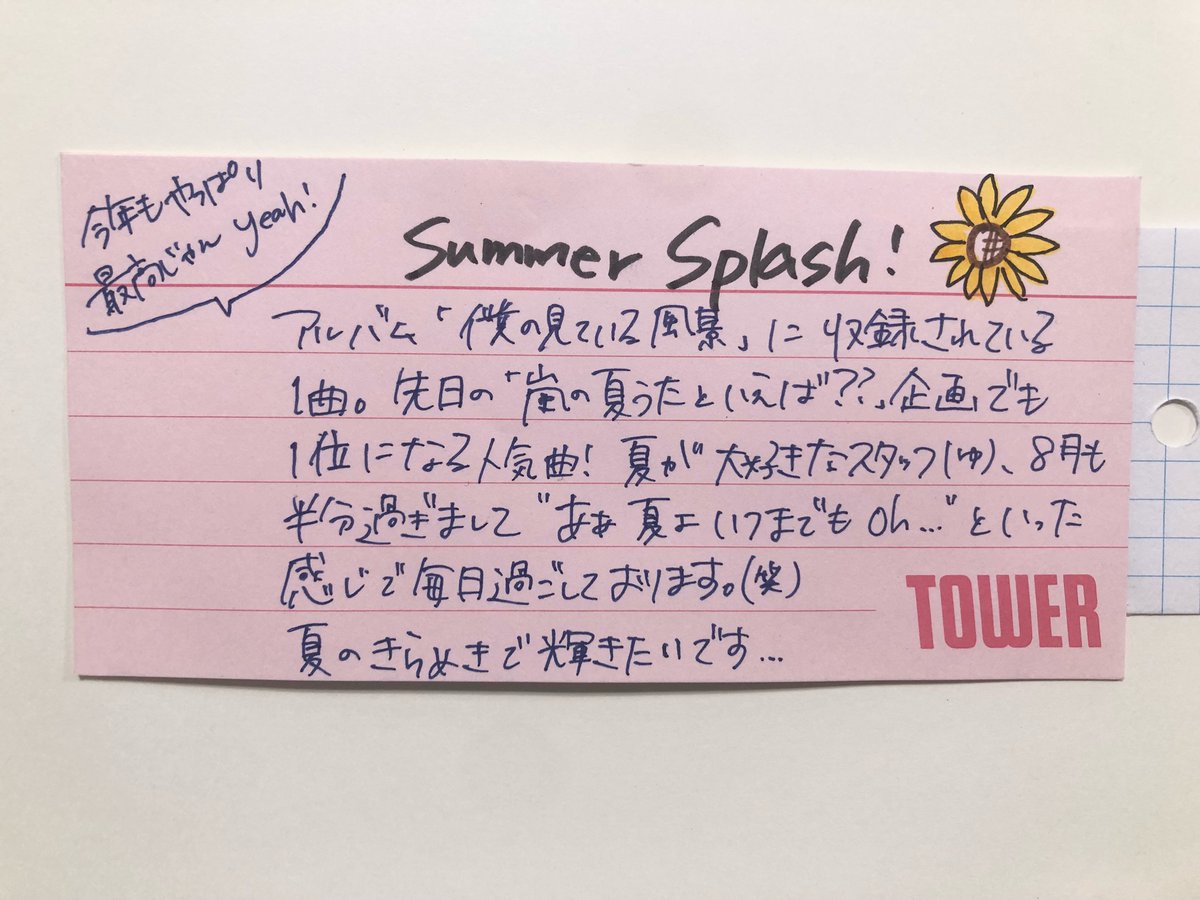 今年もやっぱり
最高じゃん yeah!
Summer Splash!
アルバム「僕の見ている風景」に収録されている
1曲。先日の「嵐の夏うたといえば??」企画でも
1位になる人気曲! 夏が大好きなスタッフ(ゆ)、8月も
半分過ぎまして"あぁ 夏よ いつまでも Oh…"といった
感じで毎日過ごしております。(笑)
夏のきらめきで輝きたいです…
TOWER